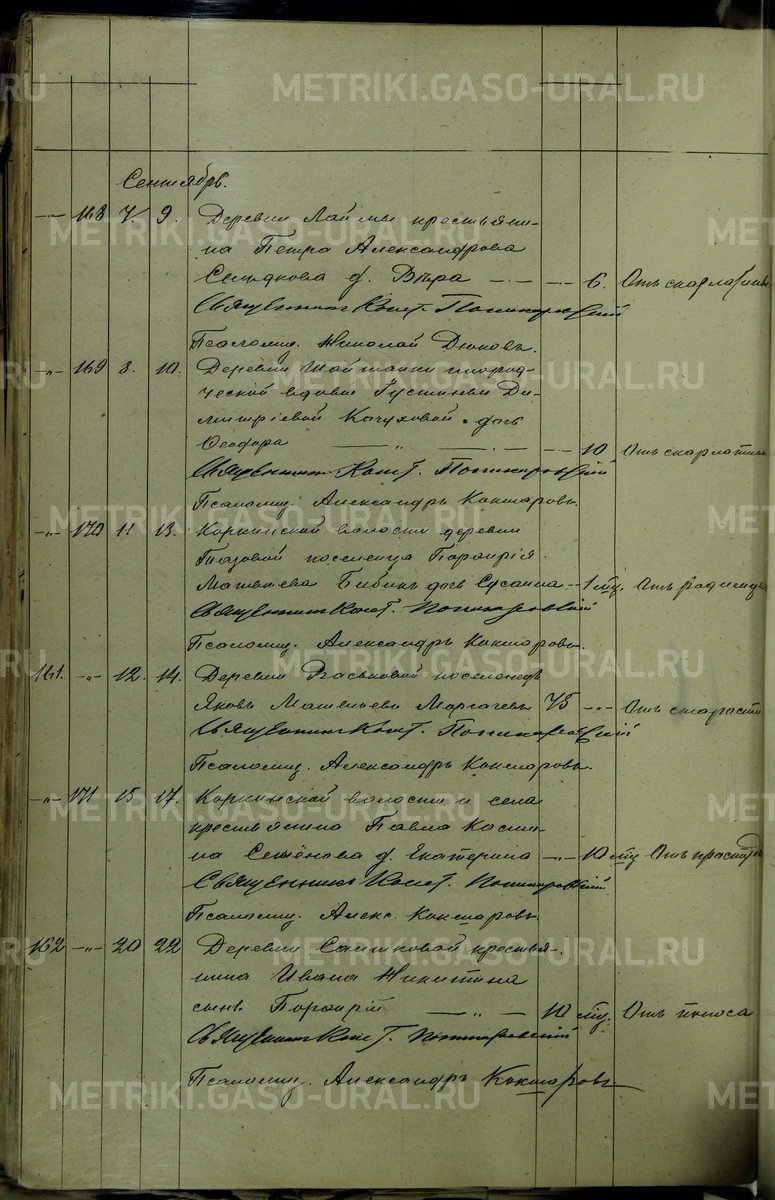 Сентябрь.
-"- 168 7. 9. Деревни Лаймы крестьяни-
на Петра Александрова
Сельдкова д. Вѣра 6. Отъ скарлатины
Священникъ Конст. Пономаревскій
Псаломщ. Николай Дюковъ.
-"- 169 8. 10. Деревни Шайтанки инород-
ческой вдовы Густиньи Ди-
митріевой Качуховой дочь
Ѳеодора -"- 10 Отъ скарлатины
Священникъ Конст.
Псаломщ. Александръ Кокшаровъ.
-"- 170 11 13. Коркинской волости деревни
поселенца Порфирія
Матвѣева Бибикъ дочь Сусанна 1 мц. Отъ родимца
Священникъ Конст.
Псаломщ. Александръ Кокшаровъ.
161. -"- 12. 14. Деревни поселенецъ
Яковъ Матвѣевъ 75 -"- Отъ старости
Священникъ Конст.
Псаломщ. Александръ Кокшаровъ.
-"- 171 15 17. Коркинской волости и села
крестьянина Павла Косми-
на Семёнова д. Екатерина -"- 10 мц Отъ простуды
Священникъ Конст.
Псаломщ. Алекс. Кокшаровъ.
162 -"- 20 22 Деревни Санниковой крестья-
нина Ивана Никитина
сынъ Порфирій -"- 10 мц. Отъ поноса
Священникъ Конст.
Псаломщ. Александръ Кокшаровъ
METRIKI.GASO-URAL.RU